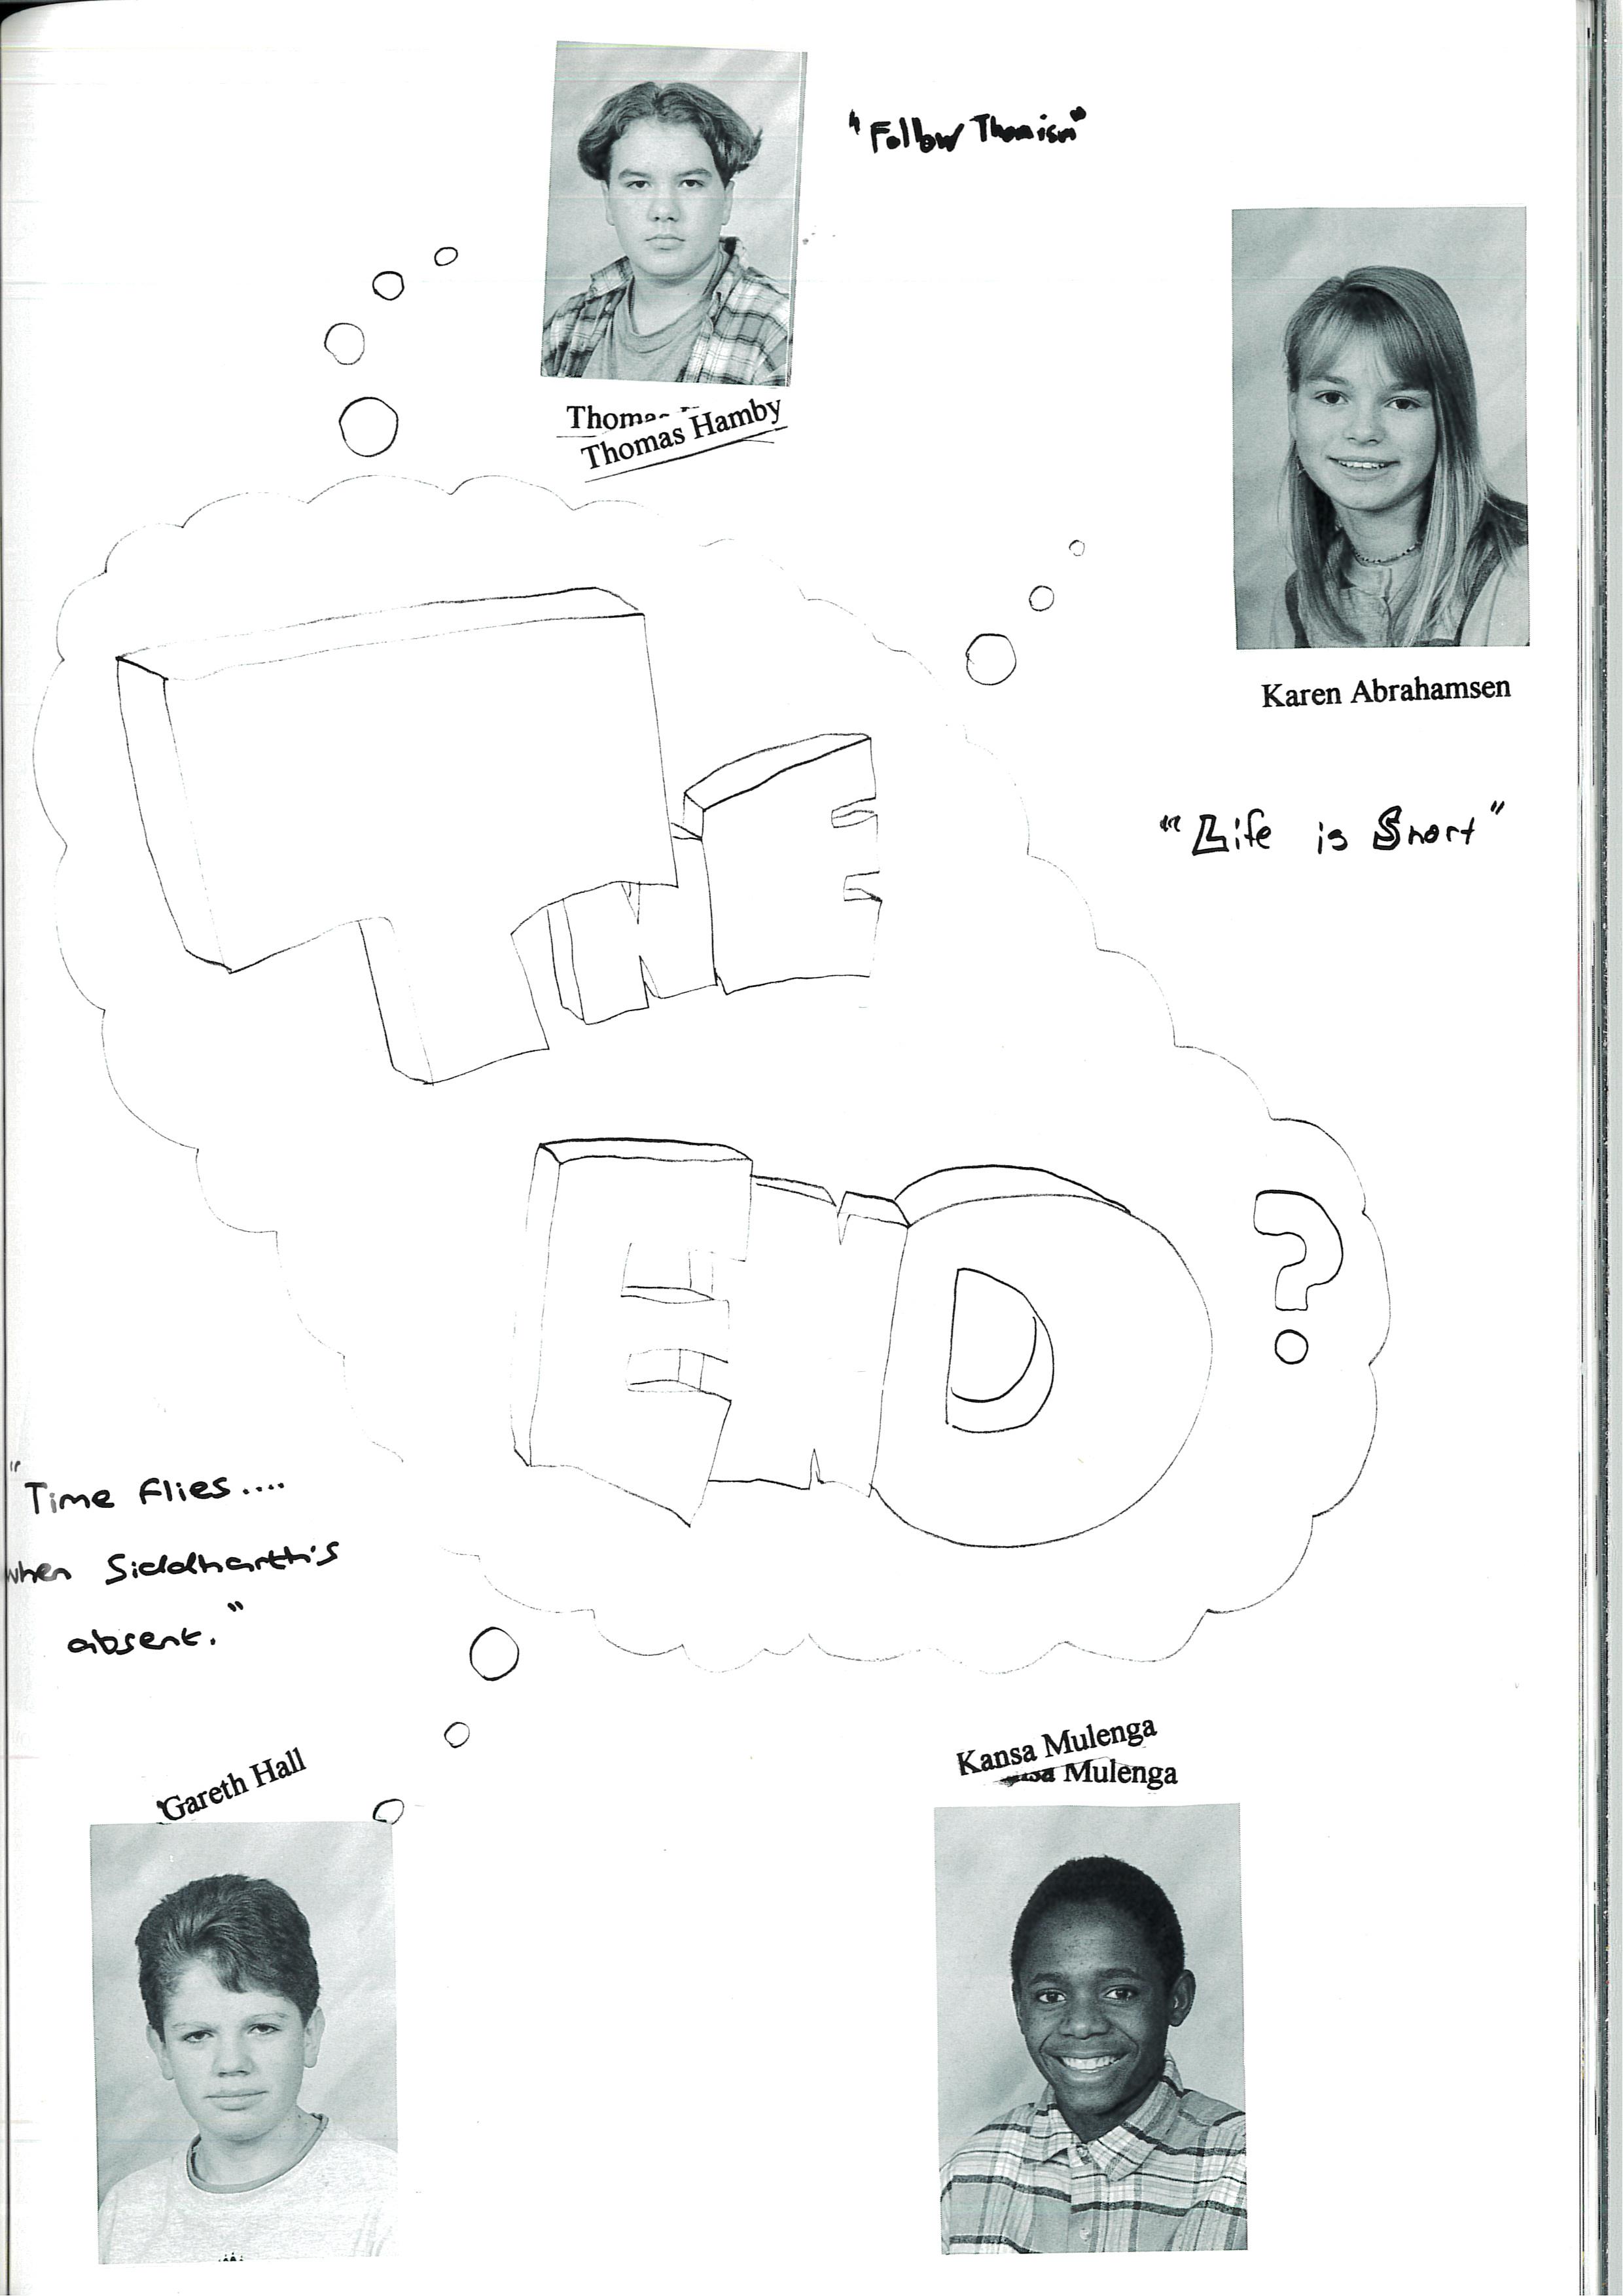 "Follow Thomism"
Thomas
Thomas Hamby
Karen Abrahamsen
"Life is Short"
THE
END ?
"Time flies....
when Siddharth's
absent."
Gareth Hall
Kansa Mulenga
Mulenga